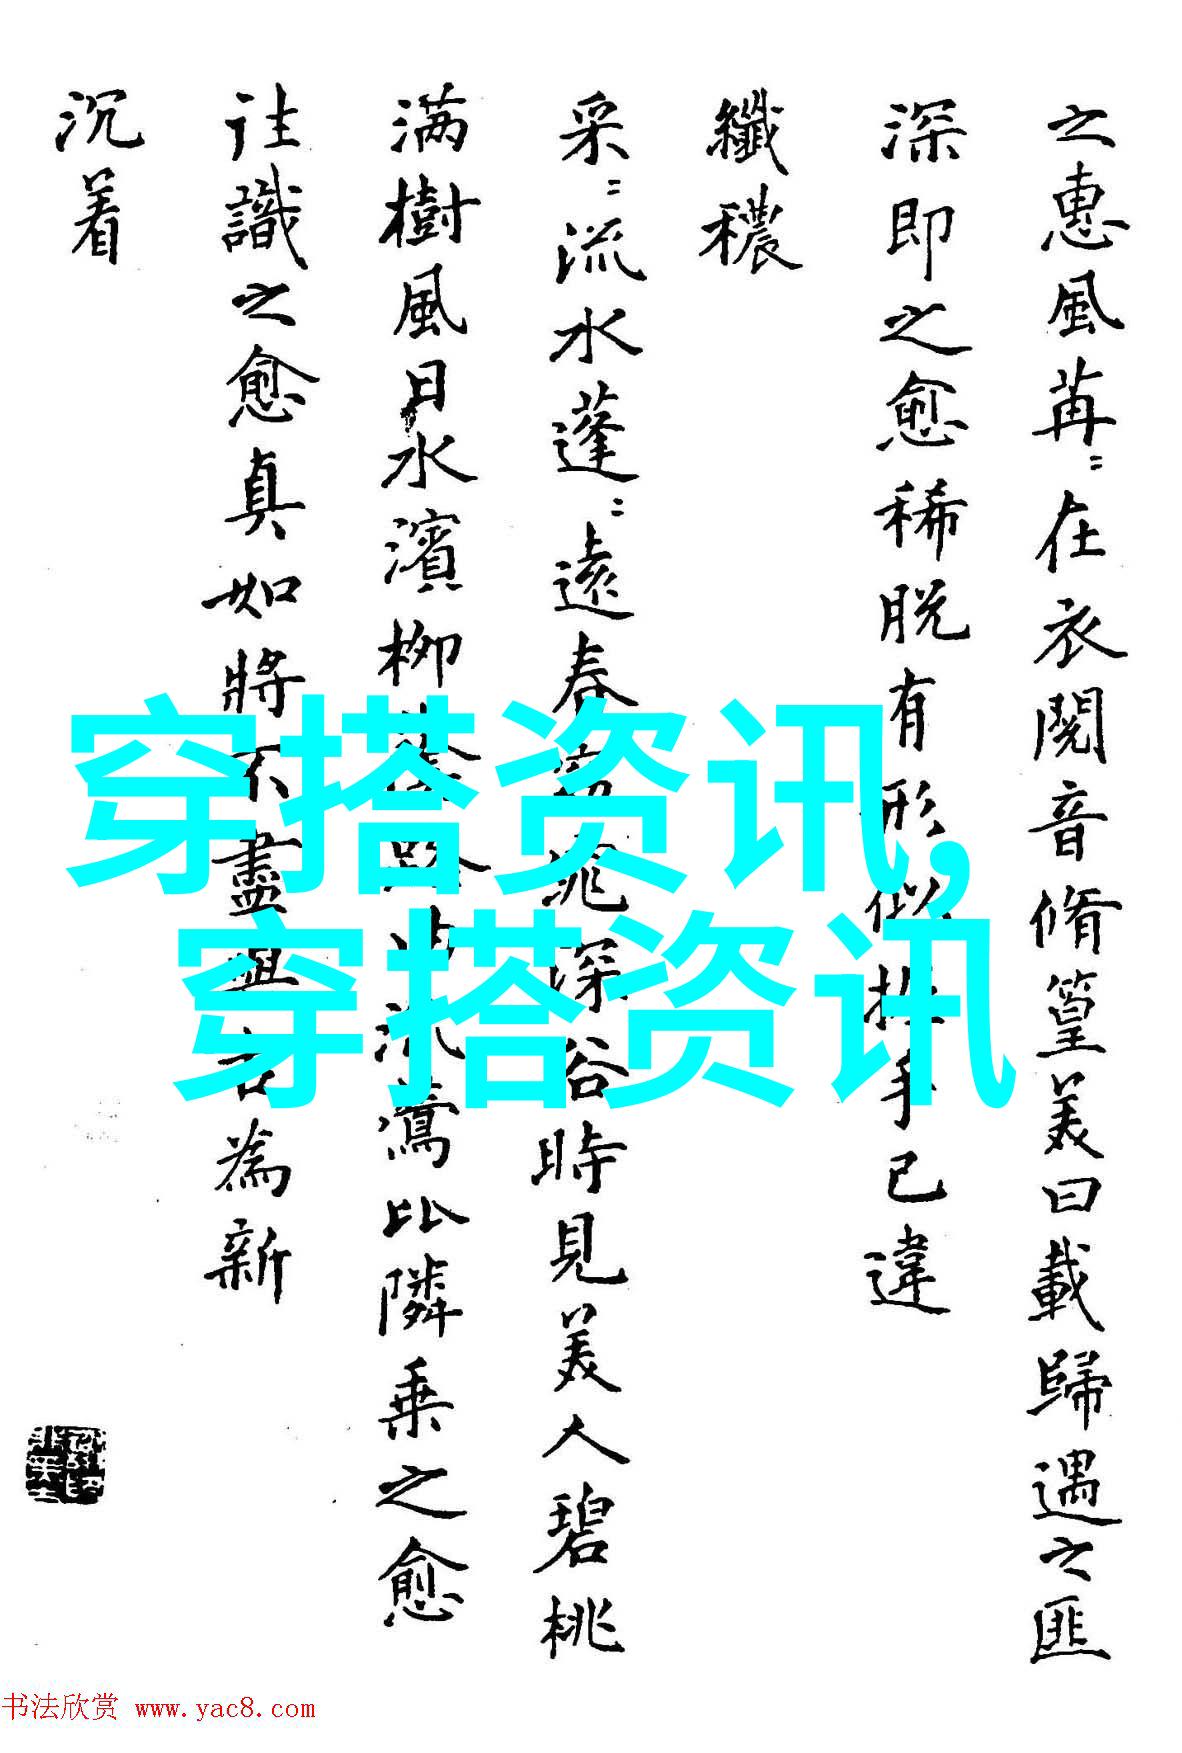 之惠風苒〻在衣閱音脩篁美曰載歸遇之匪
深即之愈稀脫有形似握手已違
纖穠
采〻流水蓬〻遠春窈窕深谷時見美人碧桃
满樹風日水濱柳陰路曲流鶯比隣乗之愈
往識之愈真如將不盡與古為新
沉着
穿搭资讯,
穿搭资讯
书法欣赏 www.yac8.com